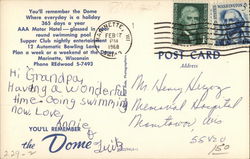 You'll remember the Dome
Where everyday is a holiday
365 days a year
AAA Motor Hotel — glassed in year
round swimming pool
Supper Club nightly entertainment
12 Automatic Bowling Lanes
Plan a week or a weekend at the Dome
Marinette, Wisconsin
Phone REdwood 5-7493
Hi Grandpa,
Having a wonderful
time. Going swimming
now Love,
Annie
&
YOU'LL REMEMBER
the Dome
MARINETTE
FEB
PM
1968
WASHINGTON
POST CARD
Address
Mr. Henry
Memorial Hospital
Manitowoc, Wis